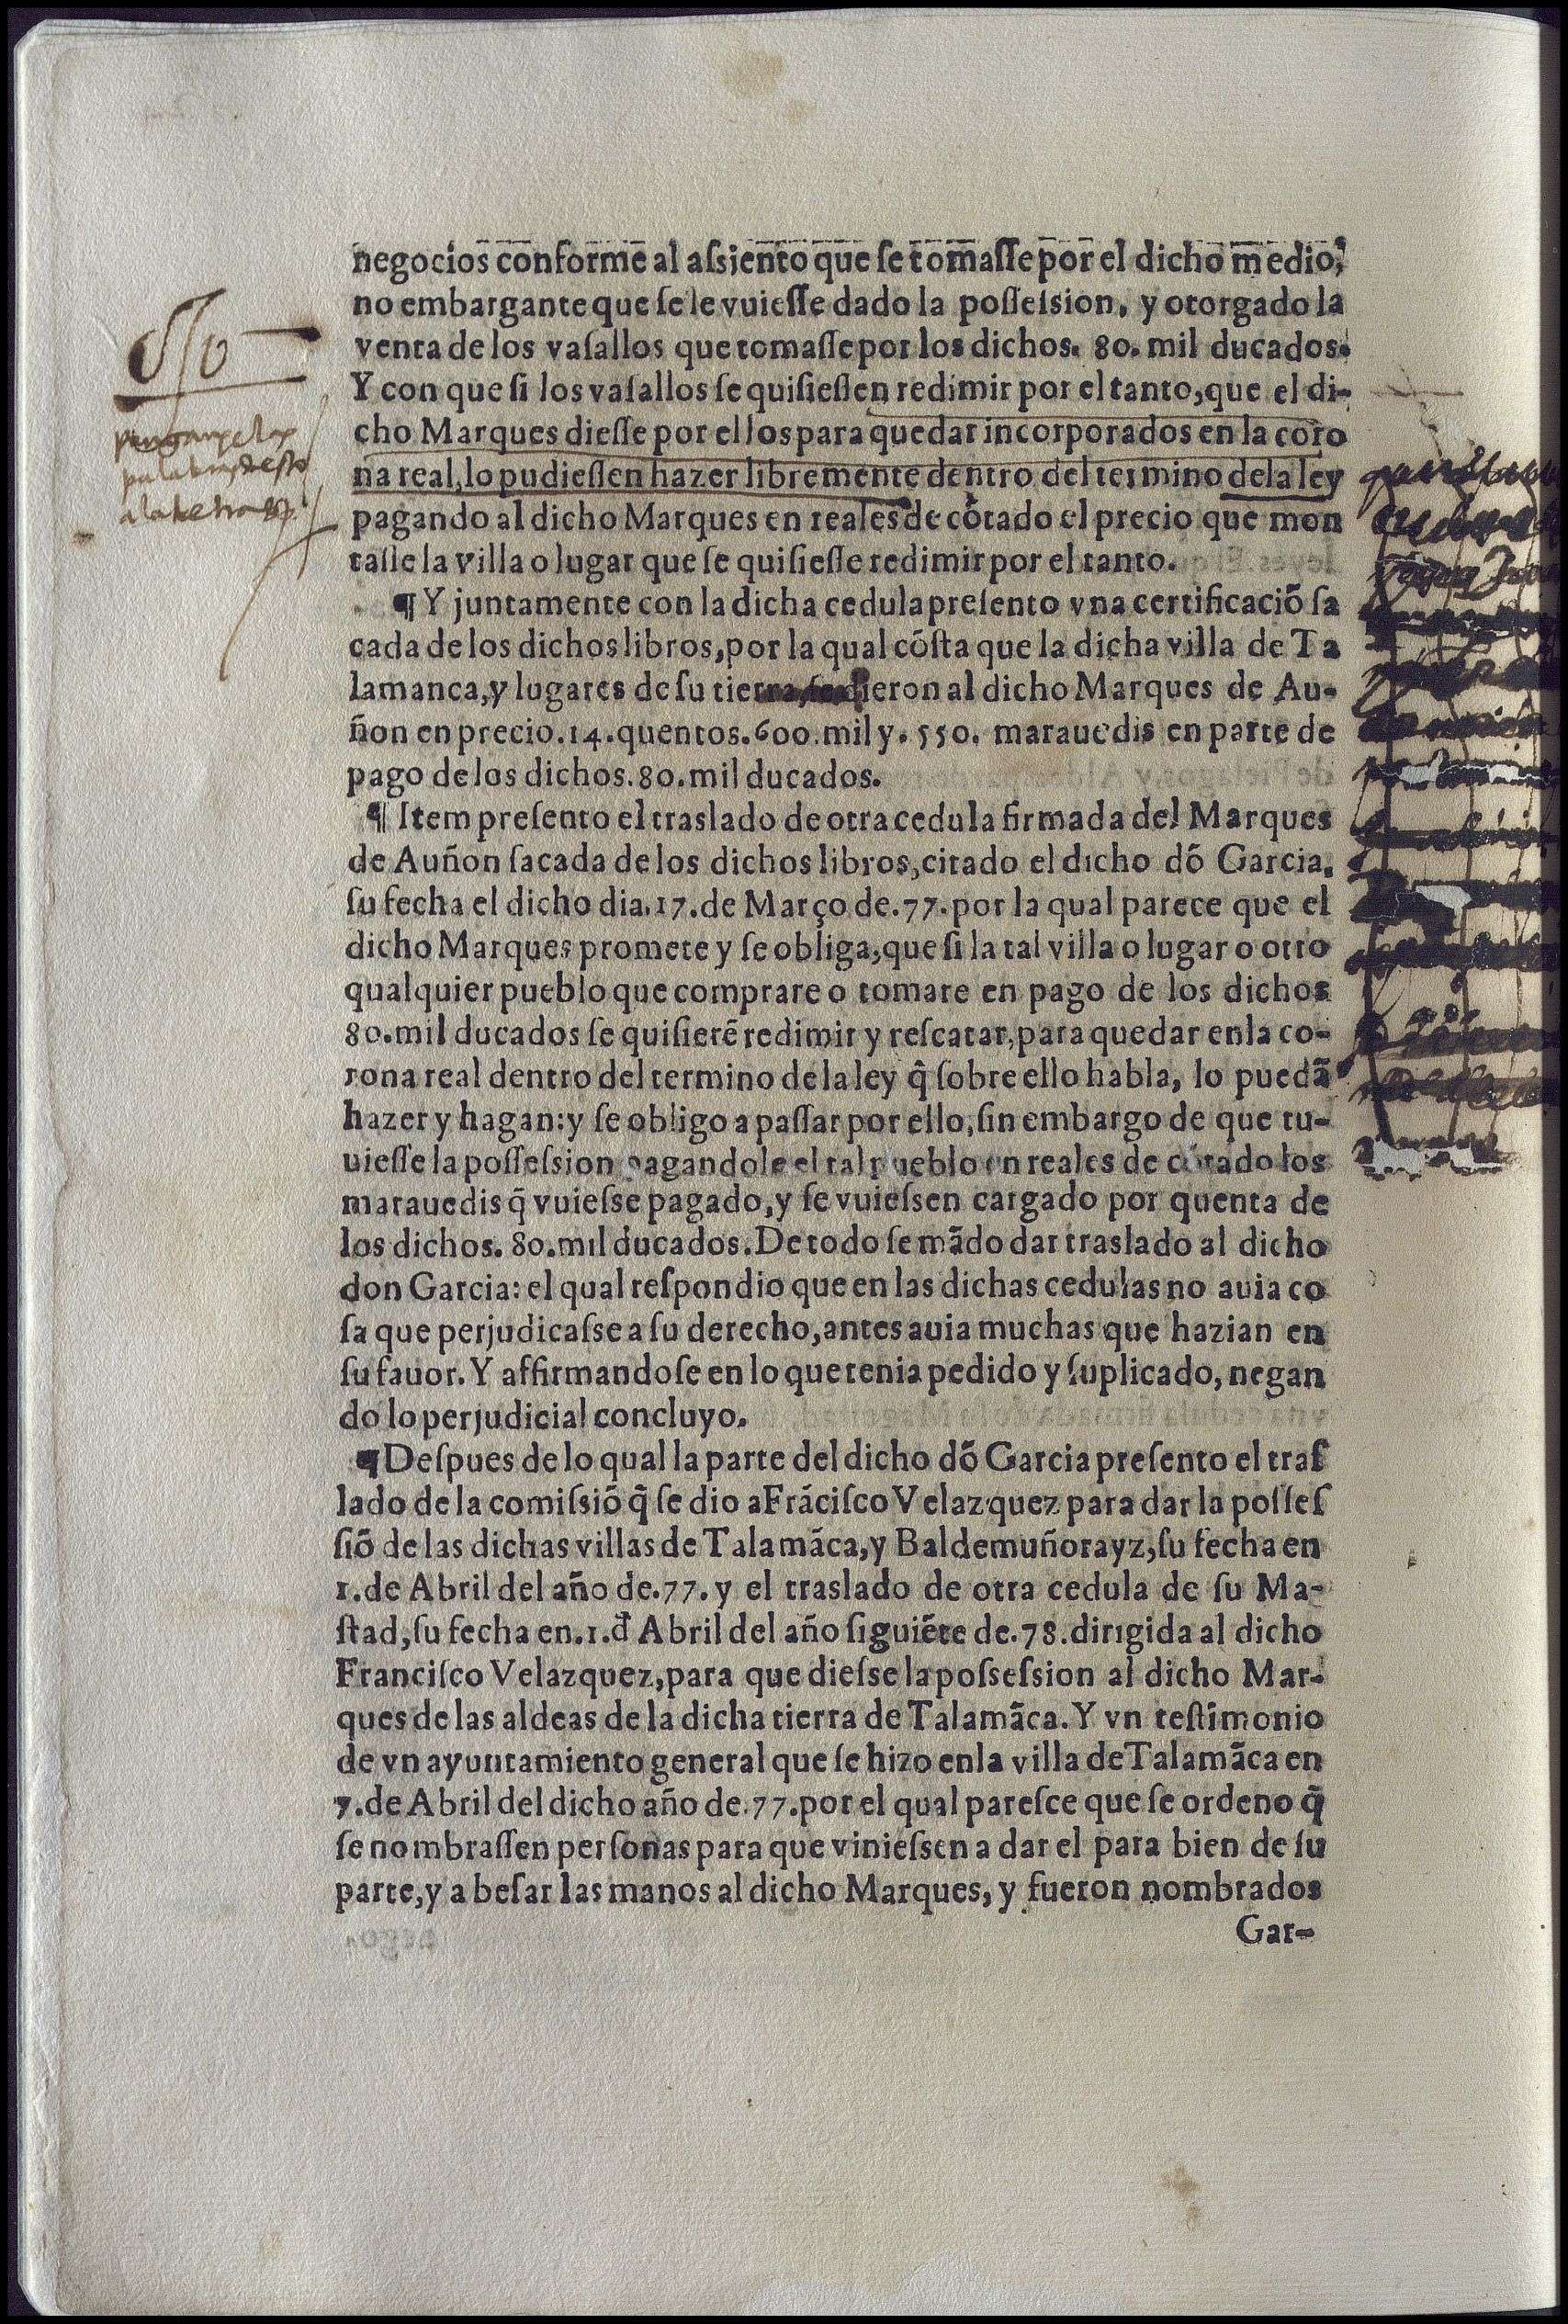 negocios conforme al assiento que se tomasse por el dicho medio,
no embargante que se le vuiesse dado la possession, y otorgado la
venta de los vasallos que tomasse por los dichos. 80. mil ducados.
Y con que si los vasallos se quisiessen redimir por el tanto, que el di-
cho Marques diesse por ellos para quedar incorporados en la coro
na real, lo pudiessen hazer libremente dentro del termino de la ley
pagando al dicho Marques en reales de cõtado el precio que mon
tasse la villa o lugar que se quisiesse redimir por el tanto.
¶ Y juntamente con la dicha cedula presento vna certificaciõ sa
cada de los dichos libros, por la qual cõsta que la dicha villa de Ta
lamanca, y lugares de su tierra, se dieron al dicho Marques de Au-
ñon en precio. 14. quentos. 600. mil y. 550. marauedis en parte de
pago de los dichos. 80. mil ducados.
¶ Item presento el traslado de otra cedula firmada del Marques
de Auñon sacada de los dichos libros, citado el dicho dõ Garcia,
su fecha el dicho dia. 17. de Março de. 77. por la qual parece que el
dicho Marques promete y se obliga, que si la tal villa o lugar o otro
qualquier pueblo que comprare o tomare en pago de los dichos
80. mil ducados se quisierẽ redimir y rescatar, para quedar enla co-
rona real dentro del termino de la ley q̃ sobre ello habla, lo puedã
hazer y hagan: y se obligo a passar por ello, sin embargo de que tu-
uiesse la possession pagandole el tal pueblo en reales de cõtado los
marauedis q̃ vuiesse pagado, y se vuiessen cargado por quenta de
los dichos. 80. mil ducados. De todo se mãdo dar traslado al dicho
don Garcia: el qual respondio que en las dichas cedulas no auia co
sa que perjudicasse a su derecho, antes auia muchas que hazian en
su fauor. Y affirmandose en lo que tenia pedido y suplicado, negan
do lo perjudicial concluyo.
¶ Despues de lo qual la parte del dicho dõ Garcia presento el tras
lado de la comissiõ q̃ se dio a Frãcisco Velazquez para dar la posses
siõ de las dichas villas de Talamãca, y Baldemuñorayz, su fecha en
1. de Abril del año de. 77. y el traslado de otra cedula de su Ma-
stad, su fecha en. 1. d̃ Abril del año siguiẽte de. 78. dirigida al dicho
Francisco Velazquez, para que diesse la possession al dicho Mar-
ques de las aldeas de la dicha tierra de Talamãca. Y vn testimonio
de vn ayuntamiento general que se hizo enla villa de Talamãca en
7. de Abril del dicho año de. 77. por el qual paresce que se ordeno q̃
se nombrassen personas para que viniessen a dar el para bien de su
parte, y a besar las manos al dicho Marques, y fueron nombrados
Gar-